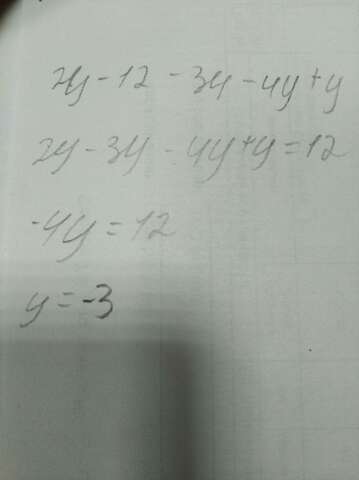 2y - 12 - 3y - 4y + y
2y - 3y - 4y + y = 12
-4y = 12
y = -3